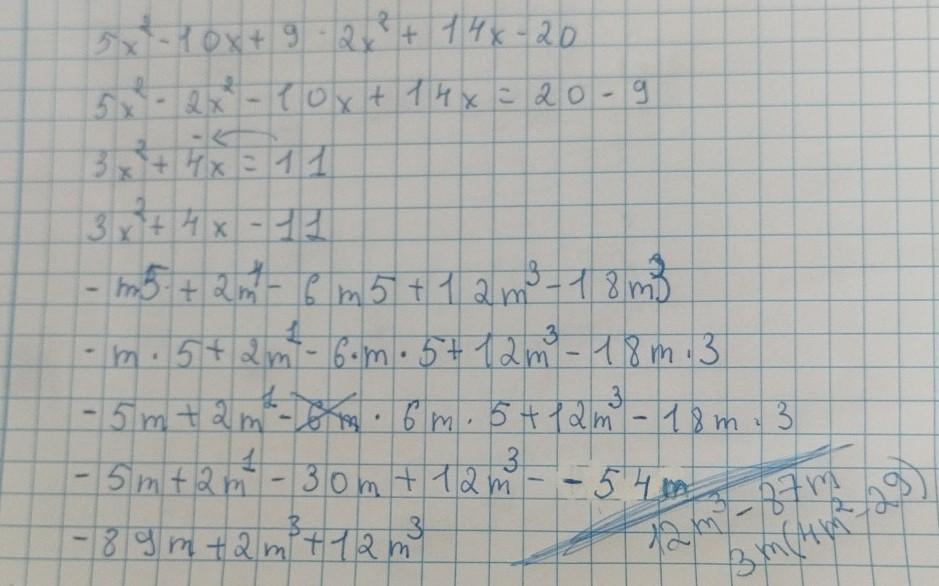 5x² - 10x + 9 - 2x² + 14x - 20
5x² - 2x² - 10x + 14x = 20 - 9
3x² + 4x = 11
3x² + 4x - 11
- m5 + 2m⁴ - 6m5 + 12m³ - 18m3
- m · 5 + 2m¹ - 6 · m · 5 + 12m³ - 18m · 3
- 5m + 2m¹ - 6m · 6m · 5 + 12m³ - 18m · 3
- 5m + 2m¹ - 30m + 12m³ - - 54m
- 89m + 2m³ + 12m³
12m³ - 87m
3m(4m² - 29)